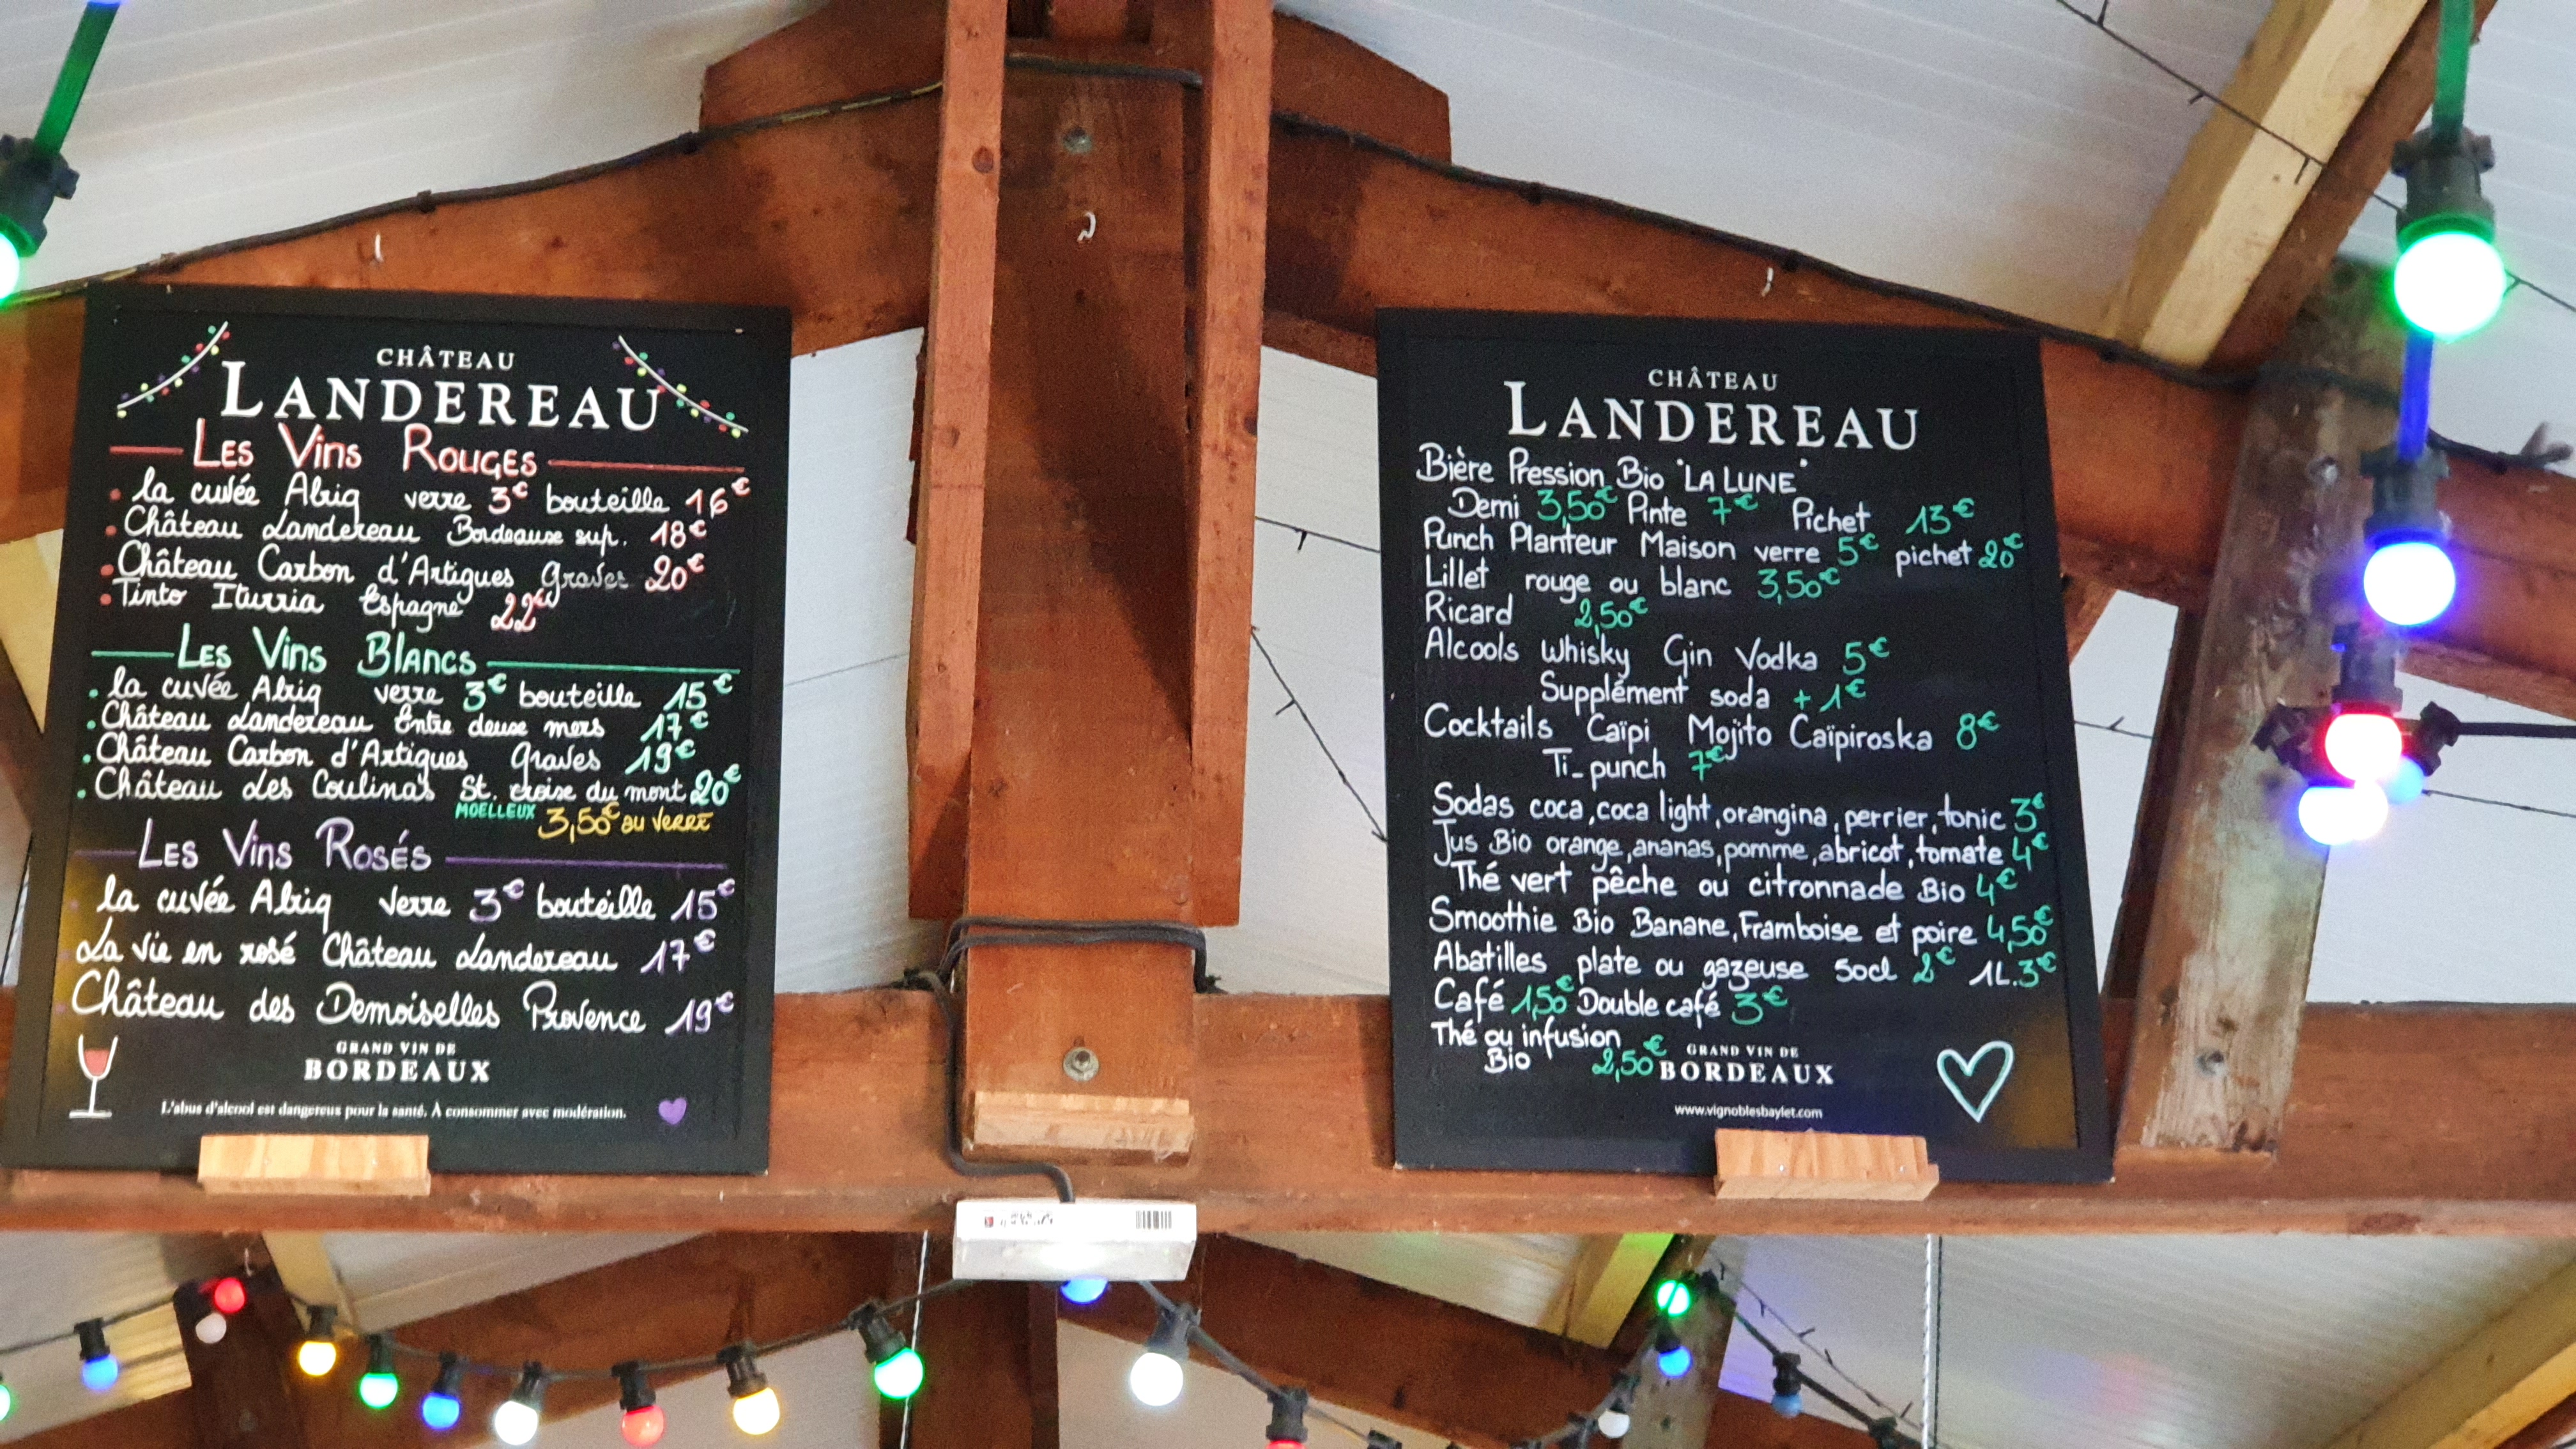 CHÂTEAU
LANDEREAU
LES VINS ROUGES
la cuvée Abrig verre 3€ bouteille 16€
Château Landereau Bordeaux sup. 18€
Château Carbon d'Artigues Graves 20€
Tinto Iturria Espagne 22€
LES VINS BLANCS
la cuvée Abrig verre 3€ bouteille 15€
Château Landereau Entre deux mers 17€
Château Carbon d'Artigues Graves 19€
Château des Coulinats St. croix du mont 20€
MOELLEUX 3,50€ au verre
LES VINS ROSÉS
la cuvée Abrig verre 3€ bouteille 15€
La vie en rosé Château Landereau 17€
Château des Demoiselles Provence 19€
GRAND VIN DE
BORDEAUX
L'abus d'alcool est dangereux pour la santé. À consommer avec modération.
CHÂTEAU
LANDEREAU
Bière Pression Bio "LA LUNE"
Demi 3,50€ Pinte 7€ Pichet 13€
Punch Planteur Maison verre 5€ pichet 20€
Lillet rouge ou blanc 3,50€
Ricard 2,50€
Alcools Whisky Gin Vodka 5€
Supplément soda + 1€
Cocktails Caïpi Mojito Caïpiroska 8€
Ti-punch 7€
Sodas coca, coca light, orangina, perrier, tonic 3€
Jus Bio orange, ananas, pomme, abricot, tomate 4€
Thé vert pêche ou citronnade Bio 4€
Smoothie Bio Banane, Framboise et poire 4,50€
Abatilles plate ou gazeuse 50cl 2€ 1L. 3€
Café 1,50€ Double café 3€
Thé ou infusion
Bio 2,50€
GRAND VIN DE
BORDEAUX
www.vignoblesbaylet.com